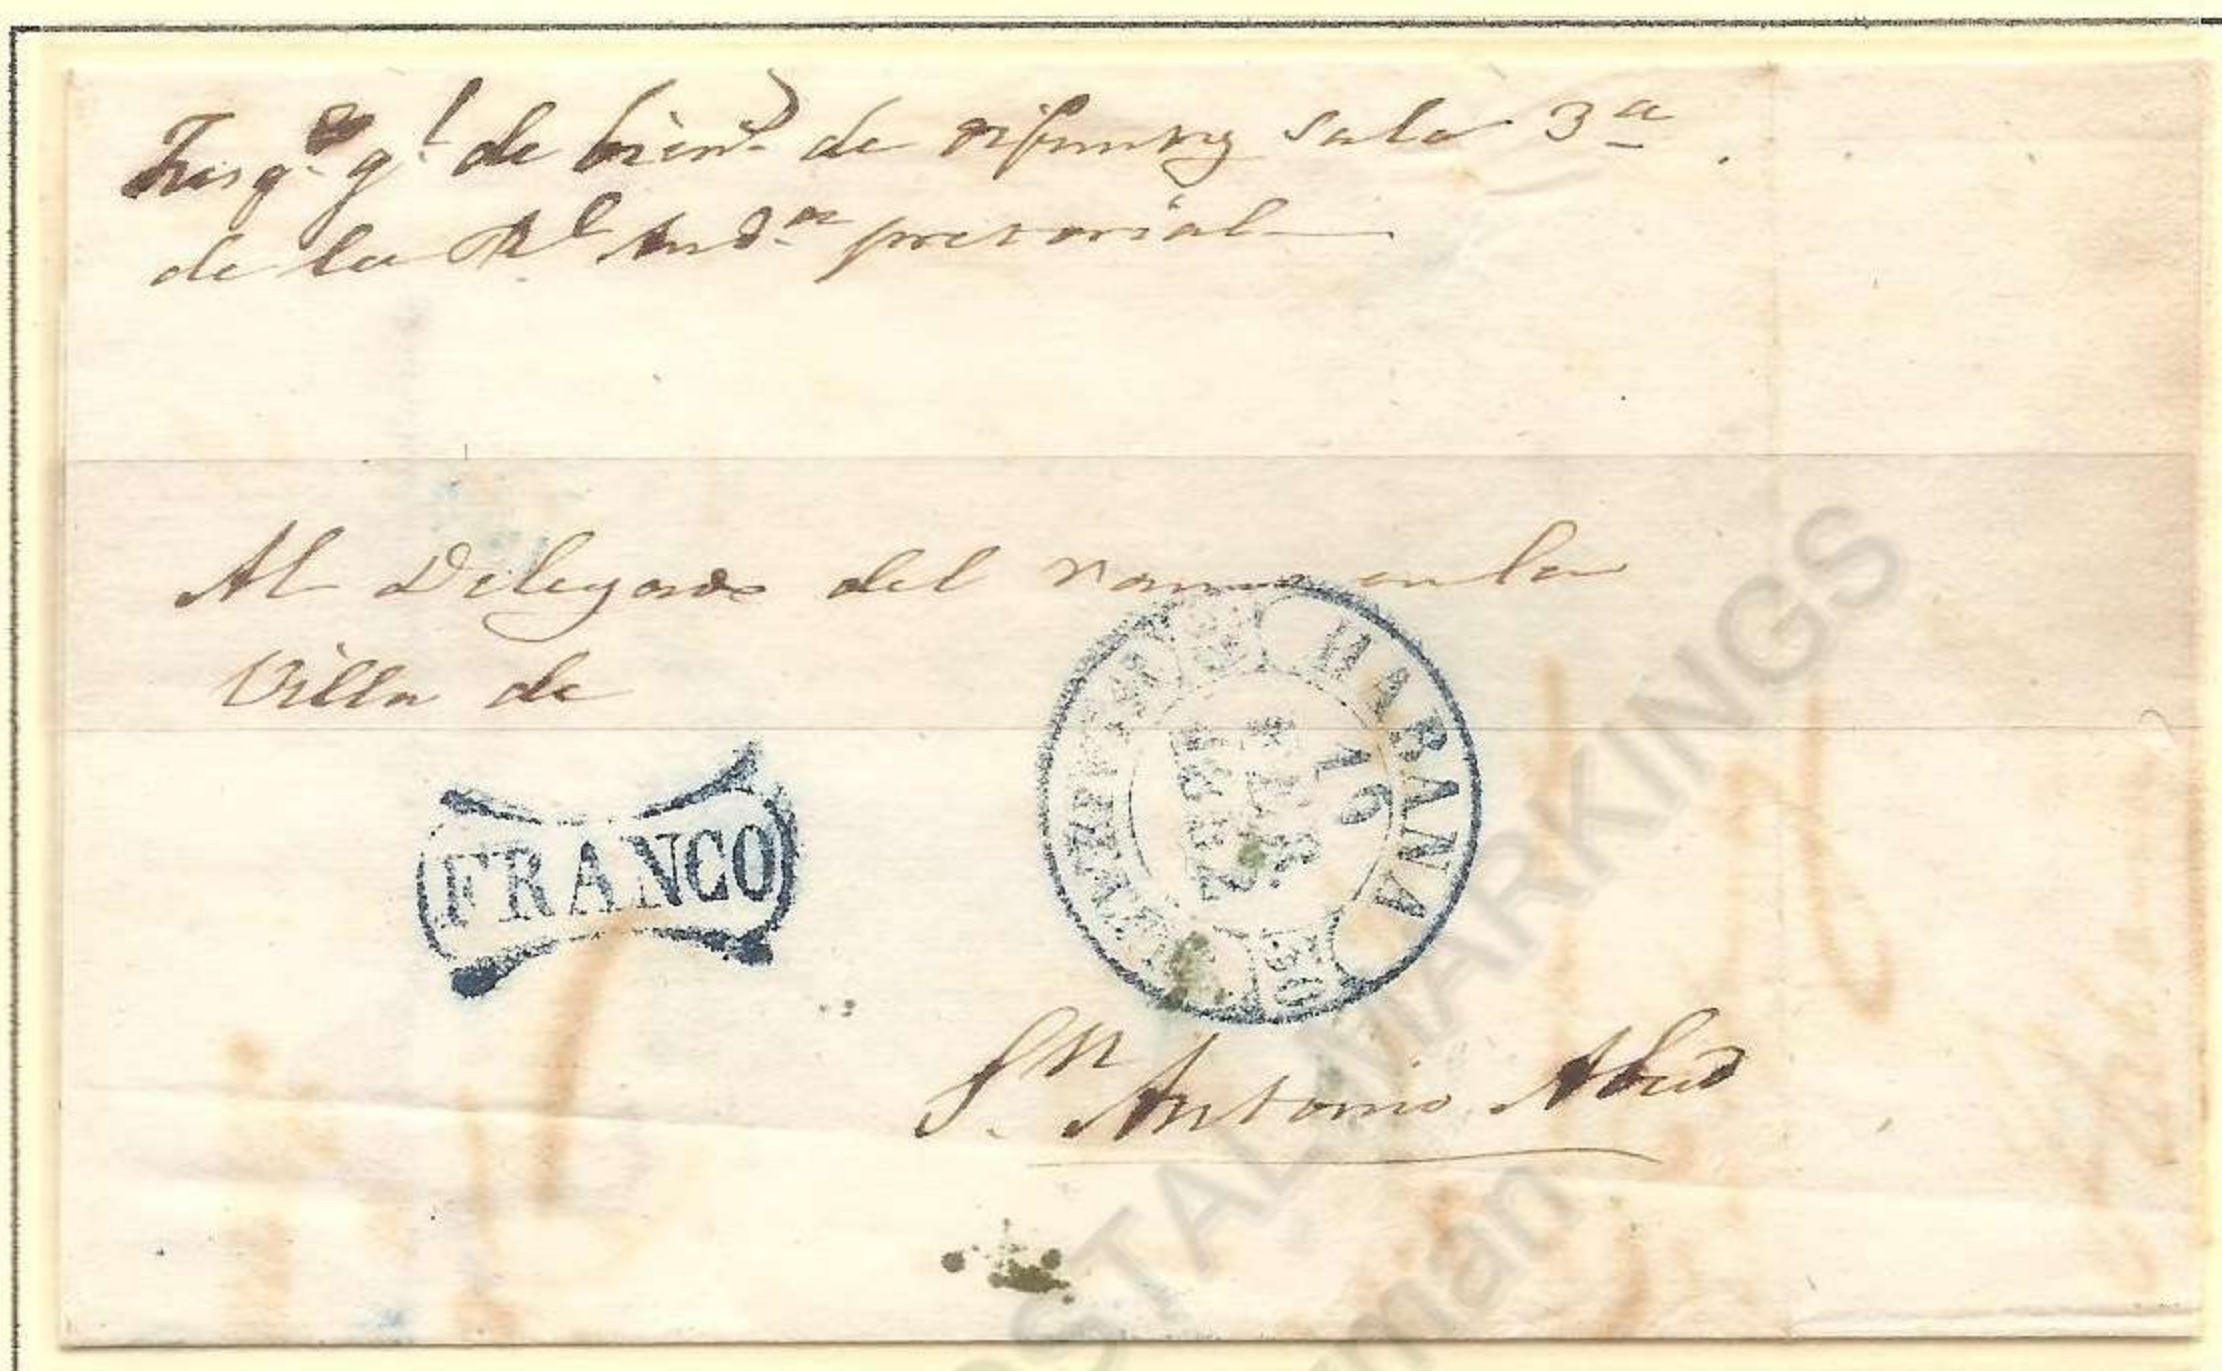 Juzgº gl de bienes de difuntos Sala 3ª
de la Rl Audª pretorial
Al Delegado del ramo en la
Villa de
FRANCO
HABANA
16
MAR.
1852
Sn Antonio Abad
POSTAL MARKINGS